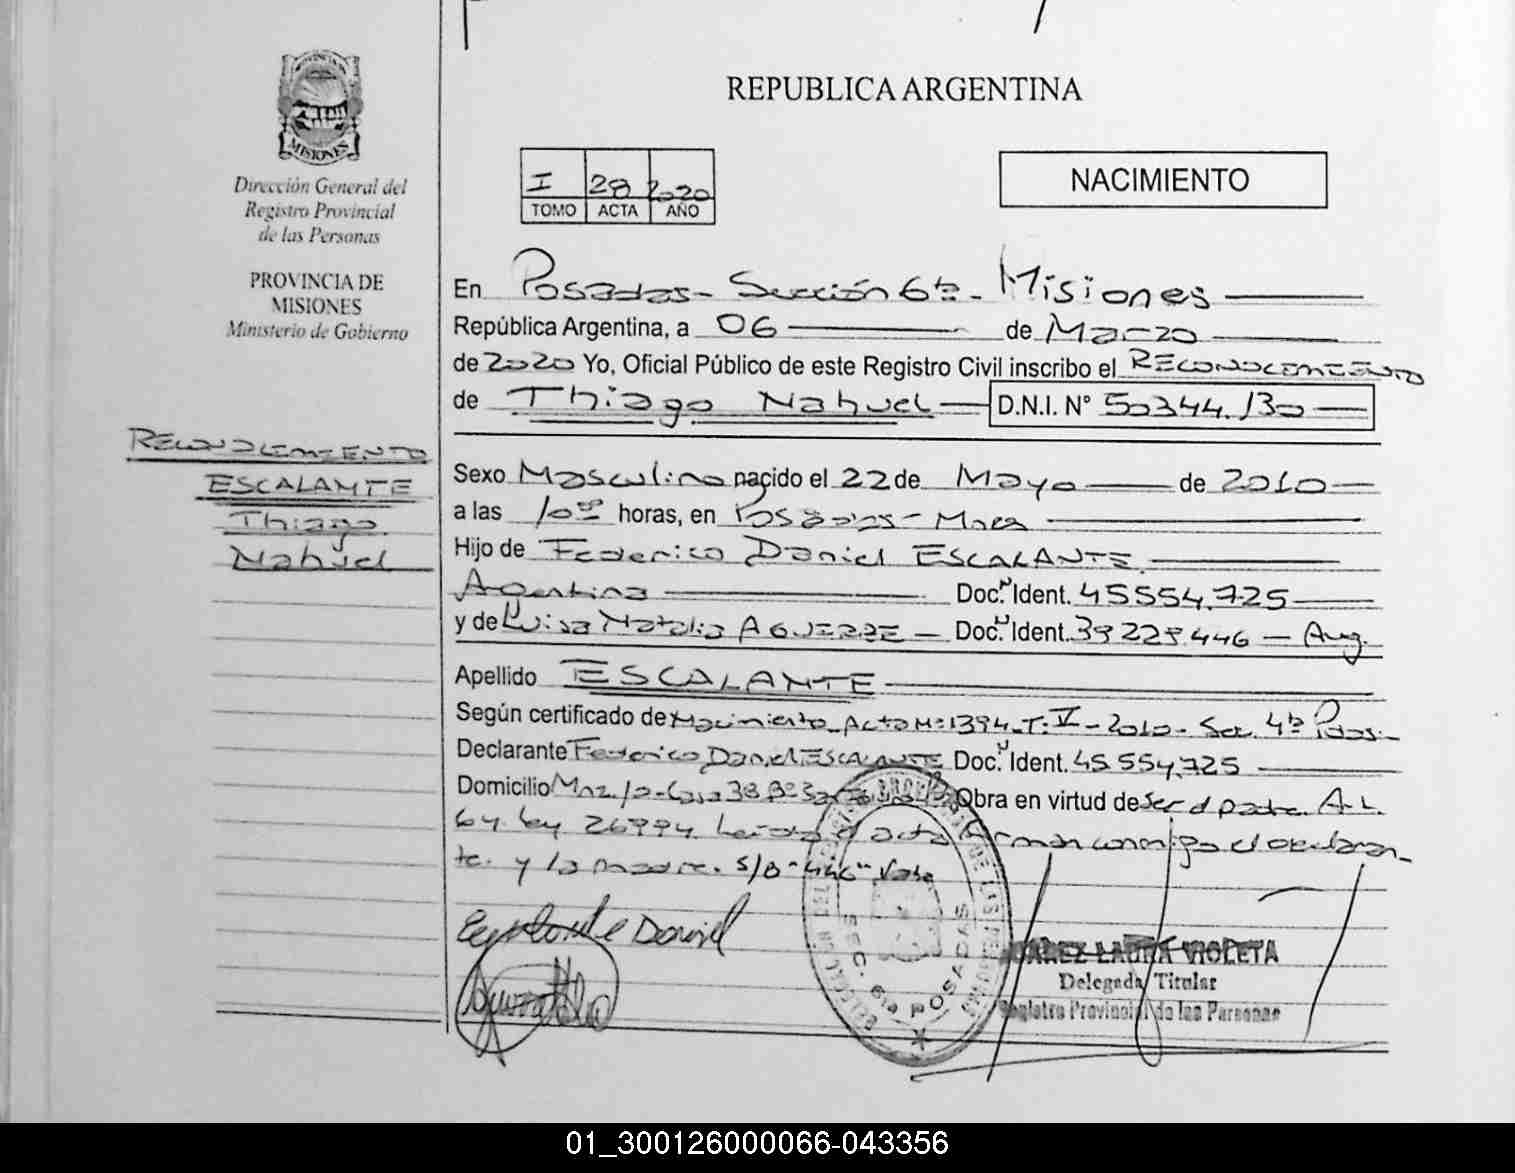 REPUBLICA ARGENTINA
MISIONES
Dirección General del
Registro Provincial
de las Personas
PROVINCIA DE
MISIONES
Ministerio de Gobierno
I 28 2020
TOMO ACTA AÑO
NACIMIENTO
En Posadas - Sección 6ta - Misiones
República Argentina, a 06 de Marzo
de 2020 Yo, Oficial Público de este Registro Civil inscribo el RECONOCIMIENTO
de Thiago Nahuel D.N.I. N° 50344.130
RECONOCIMIENTO
ESCALANTE
Thiago
Nahuel
Sexo Masculino nacido el 22 de Mayo de 2010
a las 10 horas, en Posadas - Mnes
Hijo de Federico Daniel ESCALANTE
Argentina Doc. Ident. 45554.725
y de Luisa Natalia AGUIRRE - Doc. Ident. 39229.446 - Arg.
Apellido ESCALANTE
Según certificado de Nacimiento - Acta N: 1394 - T: V - 2010 - Sec. 4ta Pdas.
Declarante Federico Daniel ESCALANTE Doc. Ident. 45554.725
Domicilio Mnz 10 - Casa 38 Bº Obra en virtud de ser el padre A-L.
64 ley 26994. Leída el acta firman conmigo el declaran-
te. y la madre. S/B "446" Vale
Escalante Daniel
SEC. 6ta POSADAS
JUAREZ LAURA VIOLETA
Delegada Titular
Registro Provincial de las Personas
01_300126000066-043356